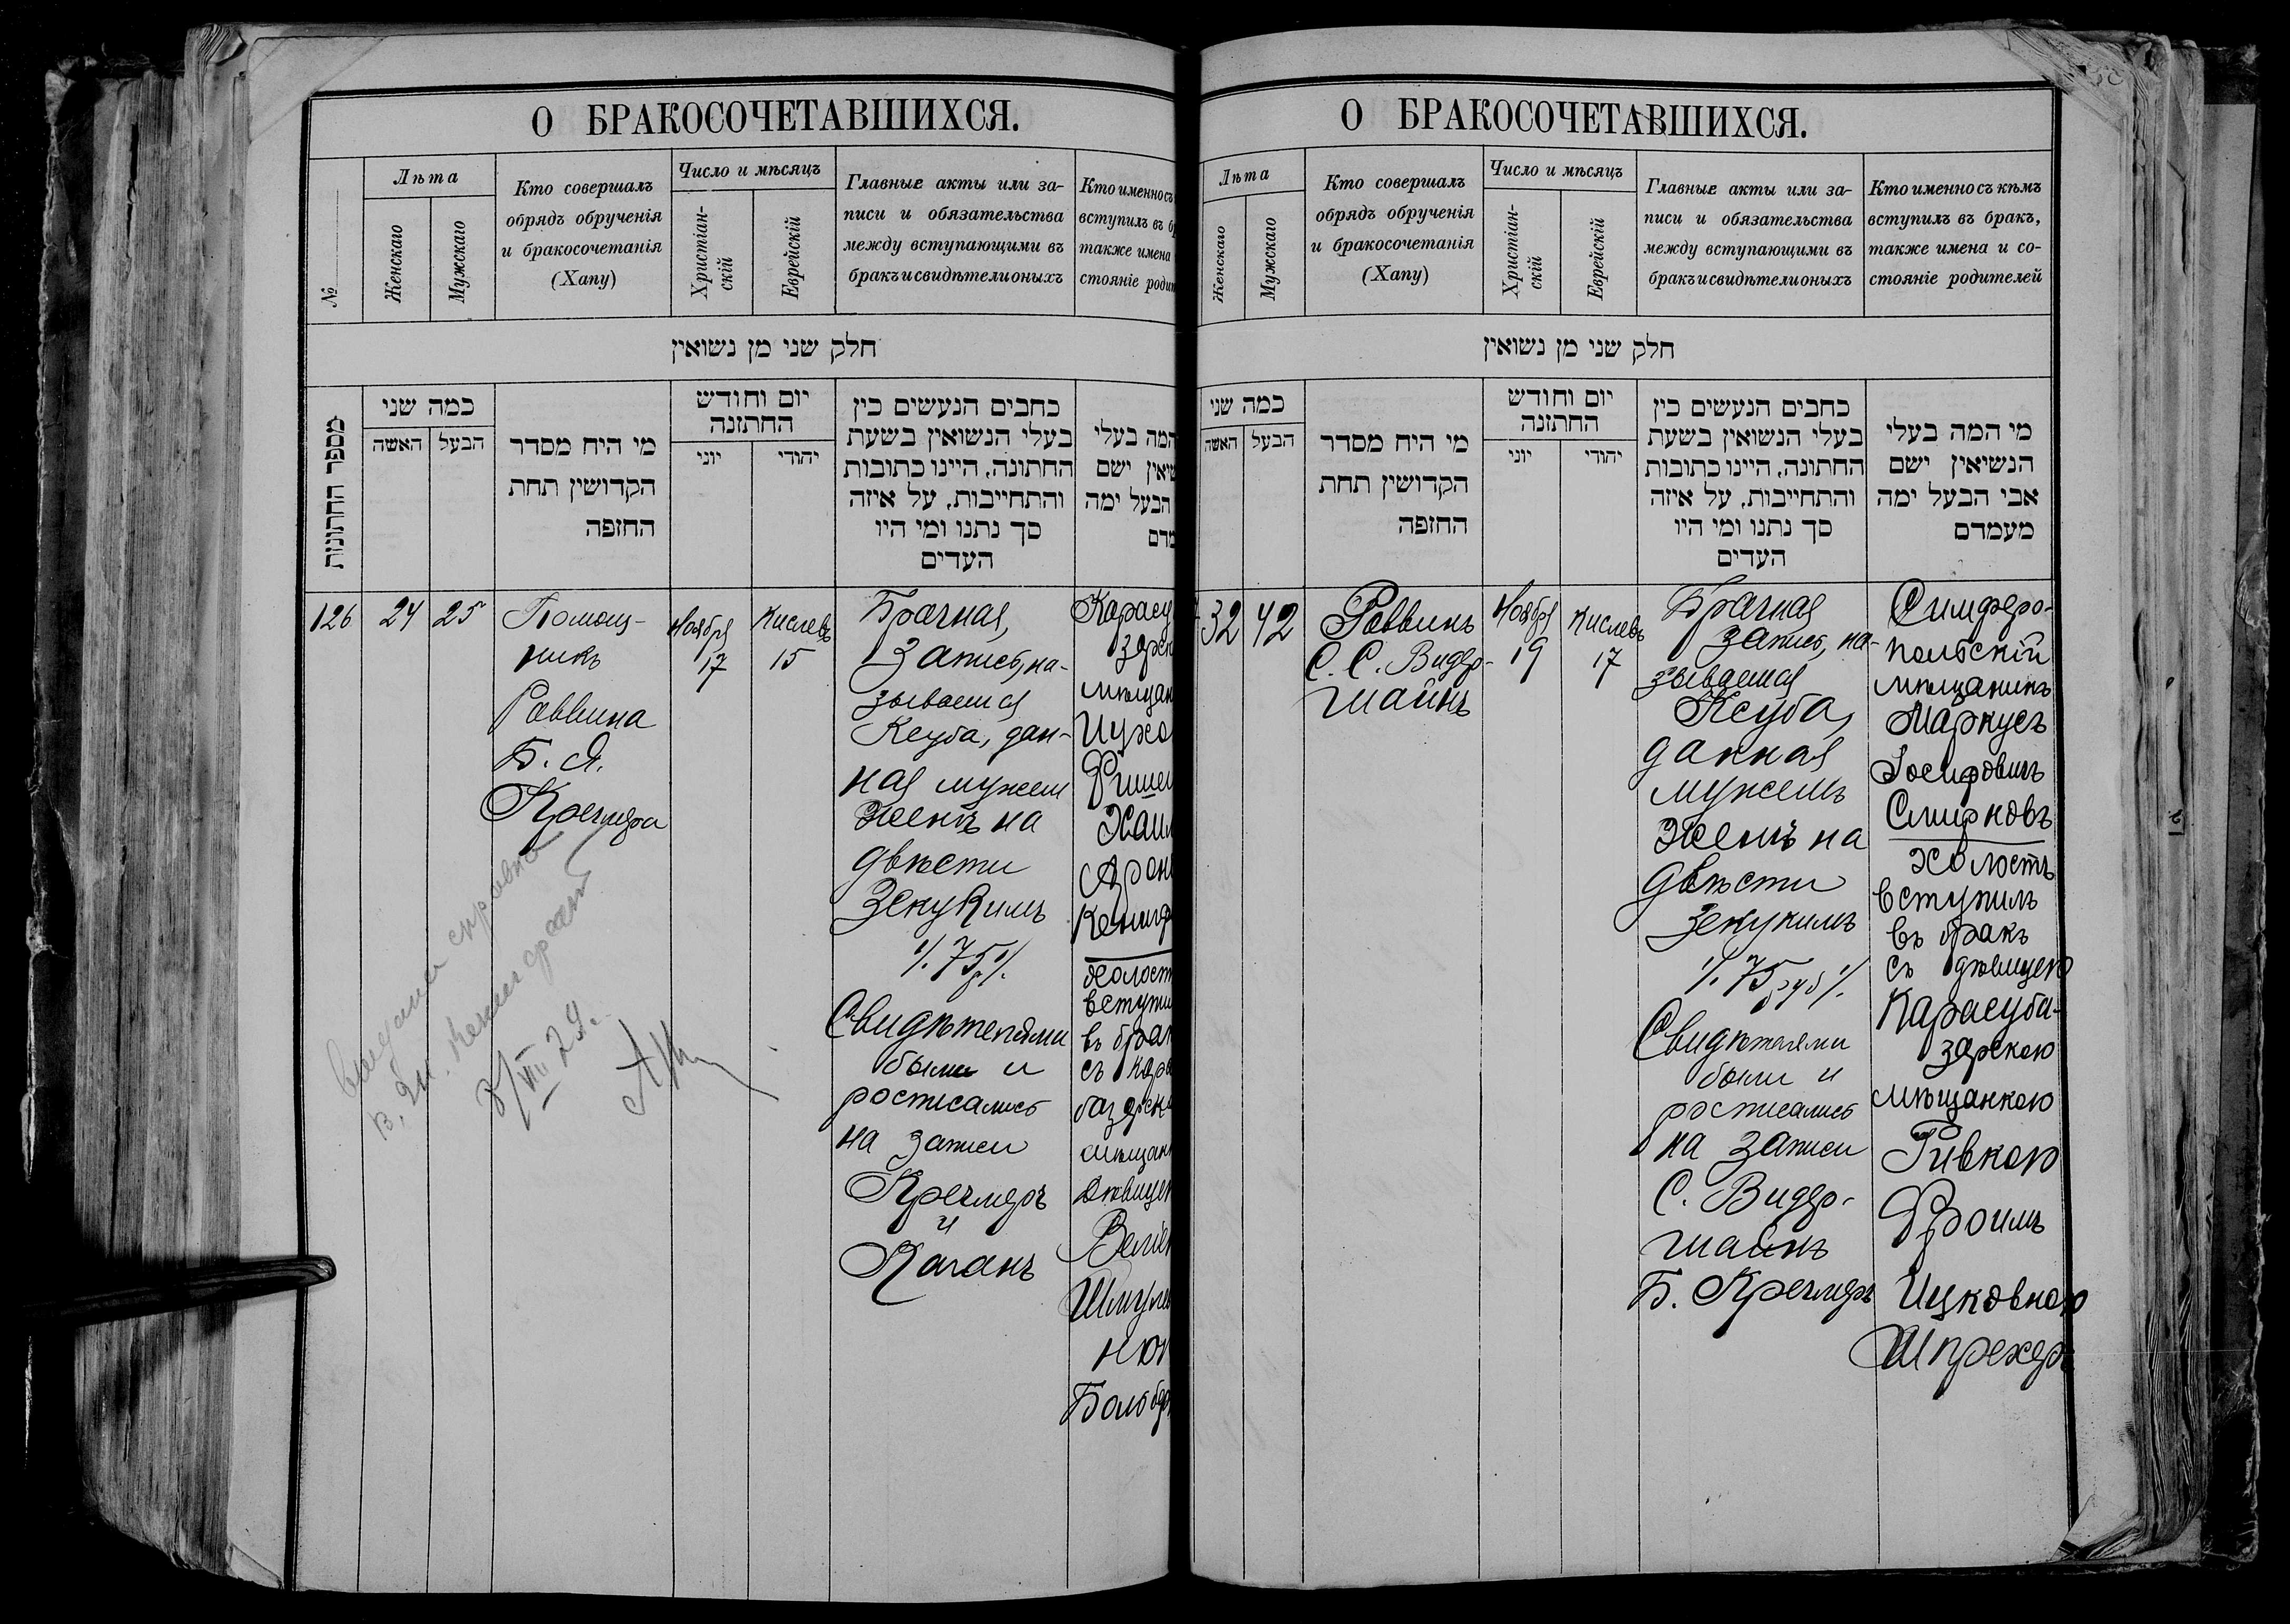 О БРАКОСОЧЕТАВШИХСЯ.
№
Лѣта
Женскаго
Мужскаго
Кто совершалъ
обрядъ обрученія
и бракосочетанія
(Хапу)
Число и мѣсяцъ
Христіан-
скій
Еврейскій
Главные акты или за-
писи и обязательства
между вступающими въ
бракъ и свидѣтели оныхъ
Кто именно съ
вступилъ въ б
также имена
стояніе роди
חלק שני מן נשואין
מספר החתונות
כמה שני
האשה
הבעל
מי היח מסדר
הקדושין תחת
החזפה
יום וחודש
החתזנה
יוני
יהודי
כחבים הנעשים כין
בעלי הנשואין בשעת
החתונה, היינו כתובות
והתחייבות, על איזה
סך נתנו ומי היו
העדים
המה בעלי
שיאין ישם
הבעל ימה
מדם
126
24
25
Помощ-
никъ
Раввина
Б. Я.
Кречмера
Ноября
17
Кислевъ
15
Брачная,
Запись, на-
зываемая
Ксуба, дан-
ная мужем
женѣ на
двѣсти
Зекукимъ
%.75р%.
Свидѣтелями
были и
росписались
на записи
Кречмеръ
и
Каганъ
Карасу
зарск
мѣщан
Ицхо
Фишел
Хаим
Арон
Кениг
холост
вступи
въ бра
съ кара
базарск
мѣщан
дѣвице
Велие
Шмуле
ню
выдана справка
8/VIII 29.
О БРАКОСОЧЕТАВШИХСЯ.
Лѣта
Женскаго
Мужскаго
Кто совершалъ
обрядъ обрученія
и бракосочетанія
(Хапу)
Число и мѣсяцъ
Христіан-
скій
Еврейскій
Главные акты или за-
писи и обязательства
между вступающими въ
бракъ и свидѣтели оныхъ
Кто именно съ кѣмъ
вступилъ въ бракъ,
также имена и со-
стояніе родителей
חלק שני מן נשואין
כמה שני
האשה
הבעל
מי היח מסדר
הקדושין תחת
החזפה
יום וחודש
החתזנה
יוני
יהודי
כחבים הנעשים כין
בעלי הנשואין בשעת
החתונה, היינו כתובות
והתחייבות, על איזה
סך נתנו ומי היו
העדים
מי המה בעלי
הנשיאין ישם
אבי הבעל ימה
מעמדם
32
42
Раввинъ
С. С. Видер-
шайнъ
Ноября
19
Кислевъ
17
Брачная
запись, на-
зываемая
Ксуба,
данная
мужемъ
женѣ на
двѣсти
зекукимъ
%.75 руб%.
Свидѣтелями
были и
росписались
на записи
С. Видер-
шайнъ
Б. Кречмеръ
Симферо-
польскій
мѣщанинъ
Маркусъ
Іосифовичъ
Смирновъ
холостъ
вступилъ
въ бракъ
съ дѣвицею
Карасуба-
зарскою
мѣщанкою
Ривкою
Фроимъ
Ицковною
Шпрехеръ